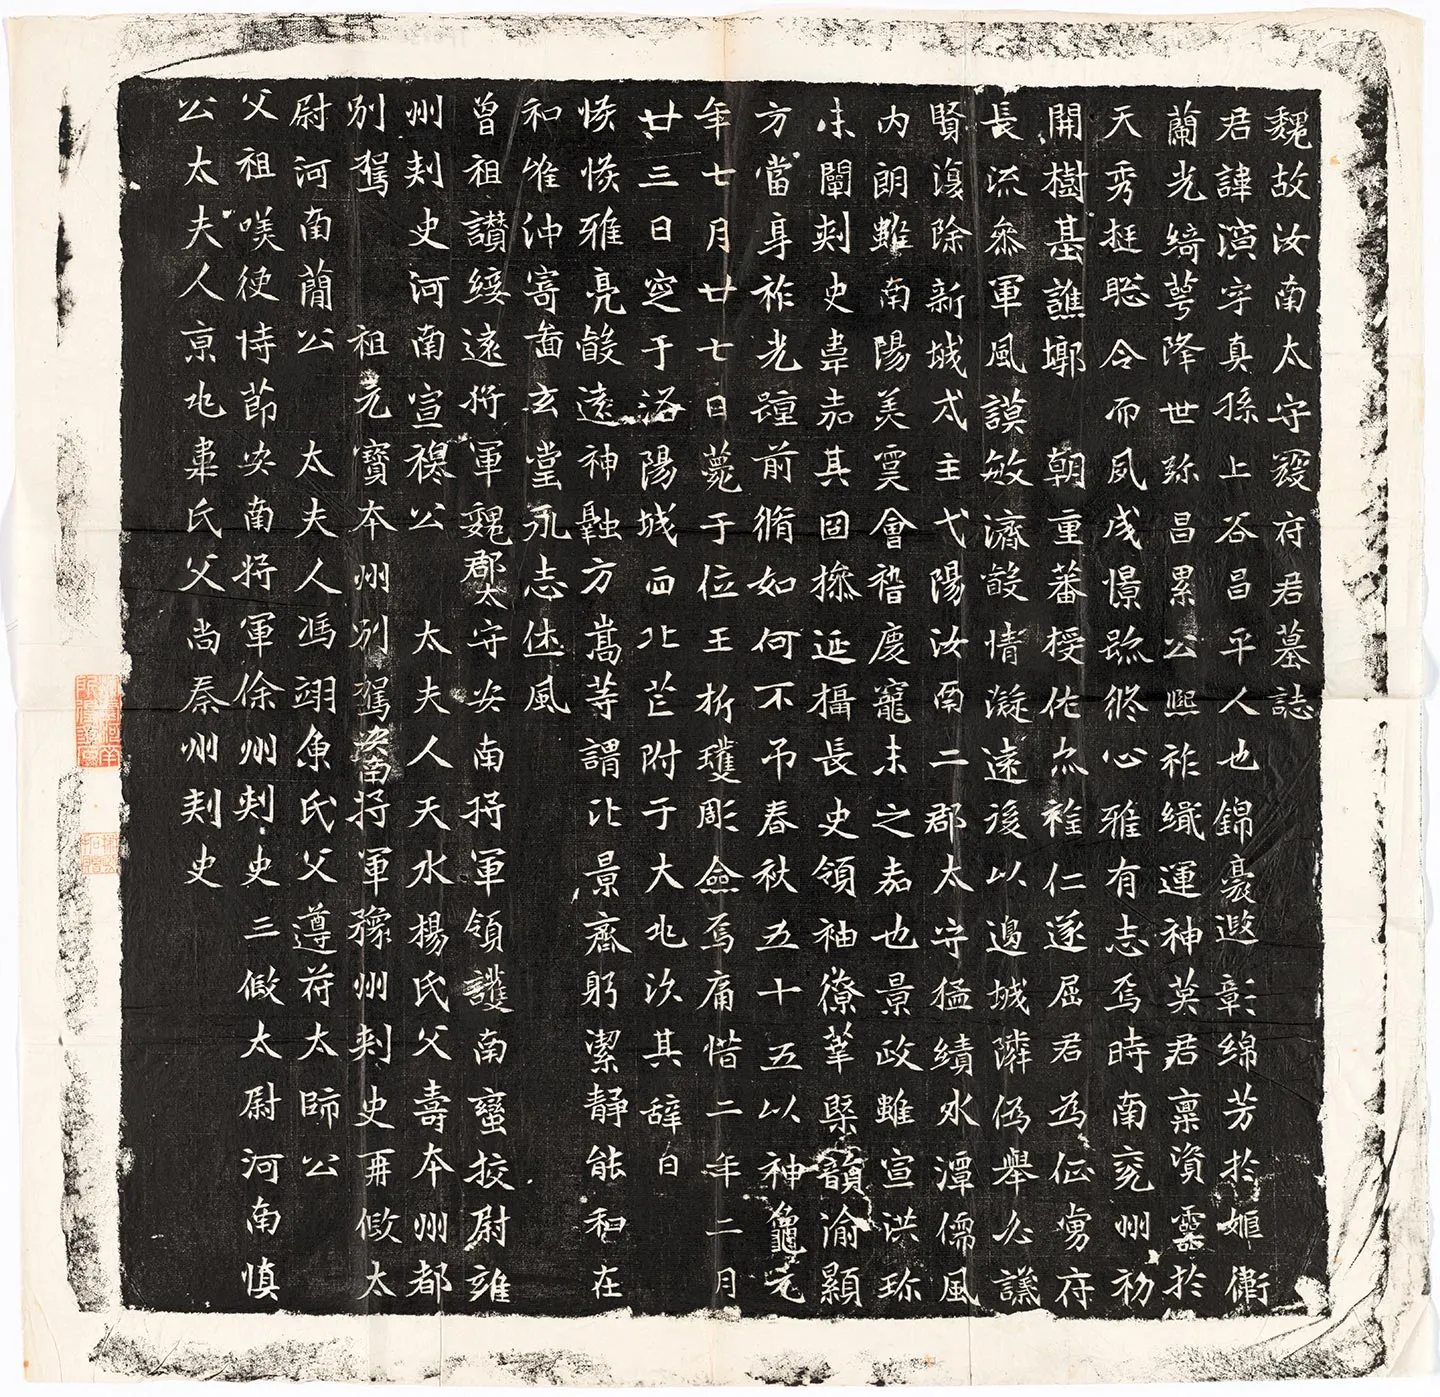 魏故汝南太守寇府君墓誌
君諱演字真孫上谷昌平人也錦裛遐彰綿芳於姬衛
蘭光綺萼降世弥昌累公熙祚織運神英君稟資靈於
天秀挺聡令而夙成憬踈終心雅有志焉時南兖州初
開樹基譙墎 朝重蕃授佐亦雜仁遂屈君為征虜府
長流叅軍風謨敏濟鼓情凝遠後以邊城隣偽舉必議
賢復除新城弍主弋陽汝南二郡太守猛績氷潭儒風
内朗雖南陽美虞會稽慶寵未之嘉也景政雖宣洪珎
未闡刾史韋嘉其固操延攝長史領袖僚菶槩韻渝顯
方當享祚光踵前脩如何不弔春秋五十五以神龜元
年七月廿七日薨于位王折瓊彫僉焉痛惜二年二月
廿三日窆于洛陽城西北芒附于大兆次其辞曰
惔惔雅亮皦遠神融方嵩等謂比景齊躬潔静能和在
和惟沖寄啚玄堂永志俇風
曾祖讃綏遠将軍魏郡太守安南将軍領護南蠻挍尉雍
州刾史河南宣穆公 太夫人天水楊氏父壽本州都
別駕 祖元寶本州別駕安南将軍豫州刾史再假太
尉河南蕳公 太夫人馮翊魚氏父遵苻太師公
父祖嘆使恃節安南将軍徐州刾史三假太尉河南慎
公太夫人京兆韋氏父尚秦州刾史